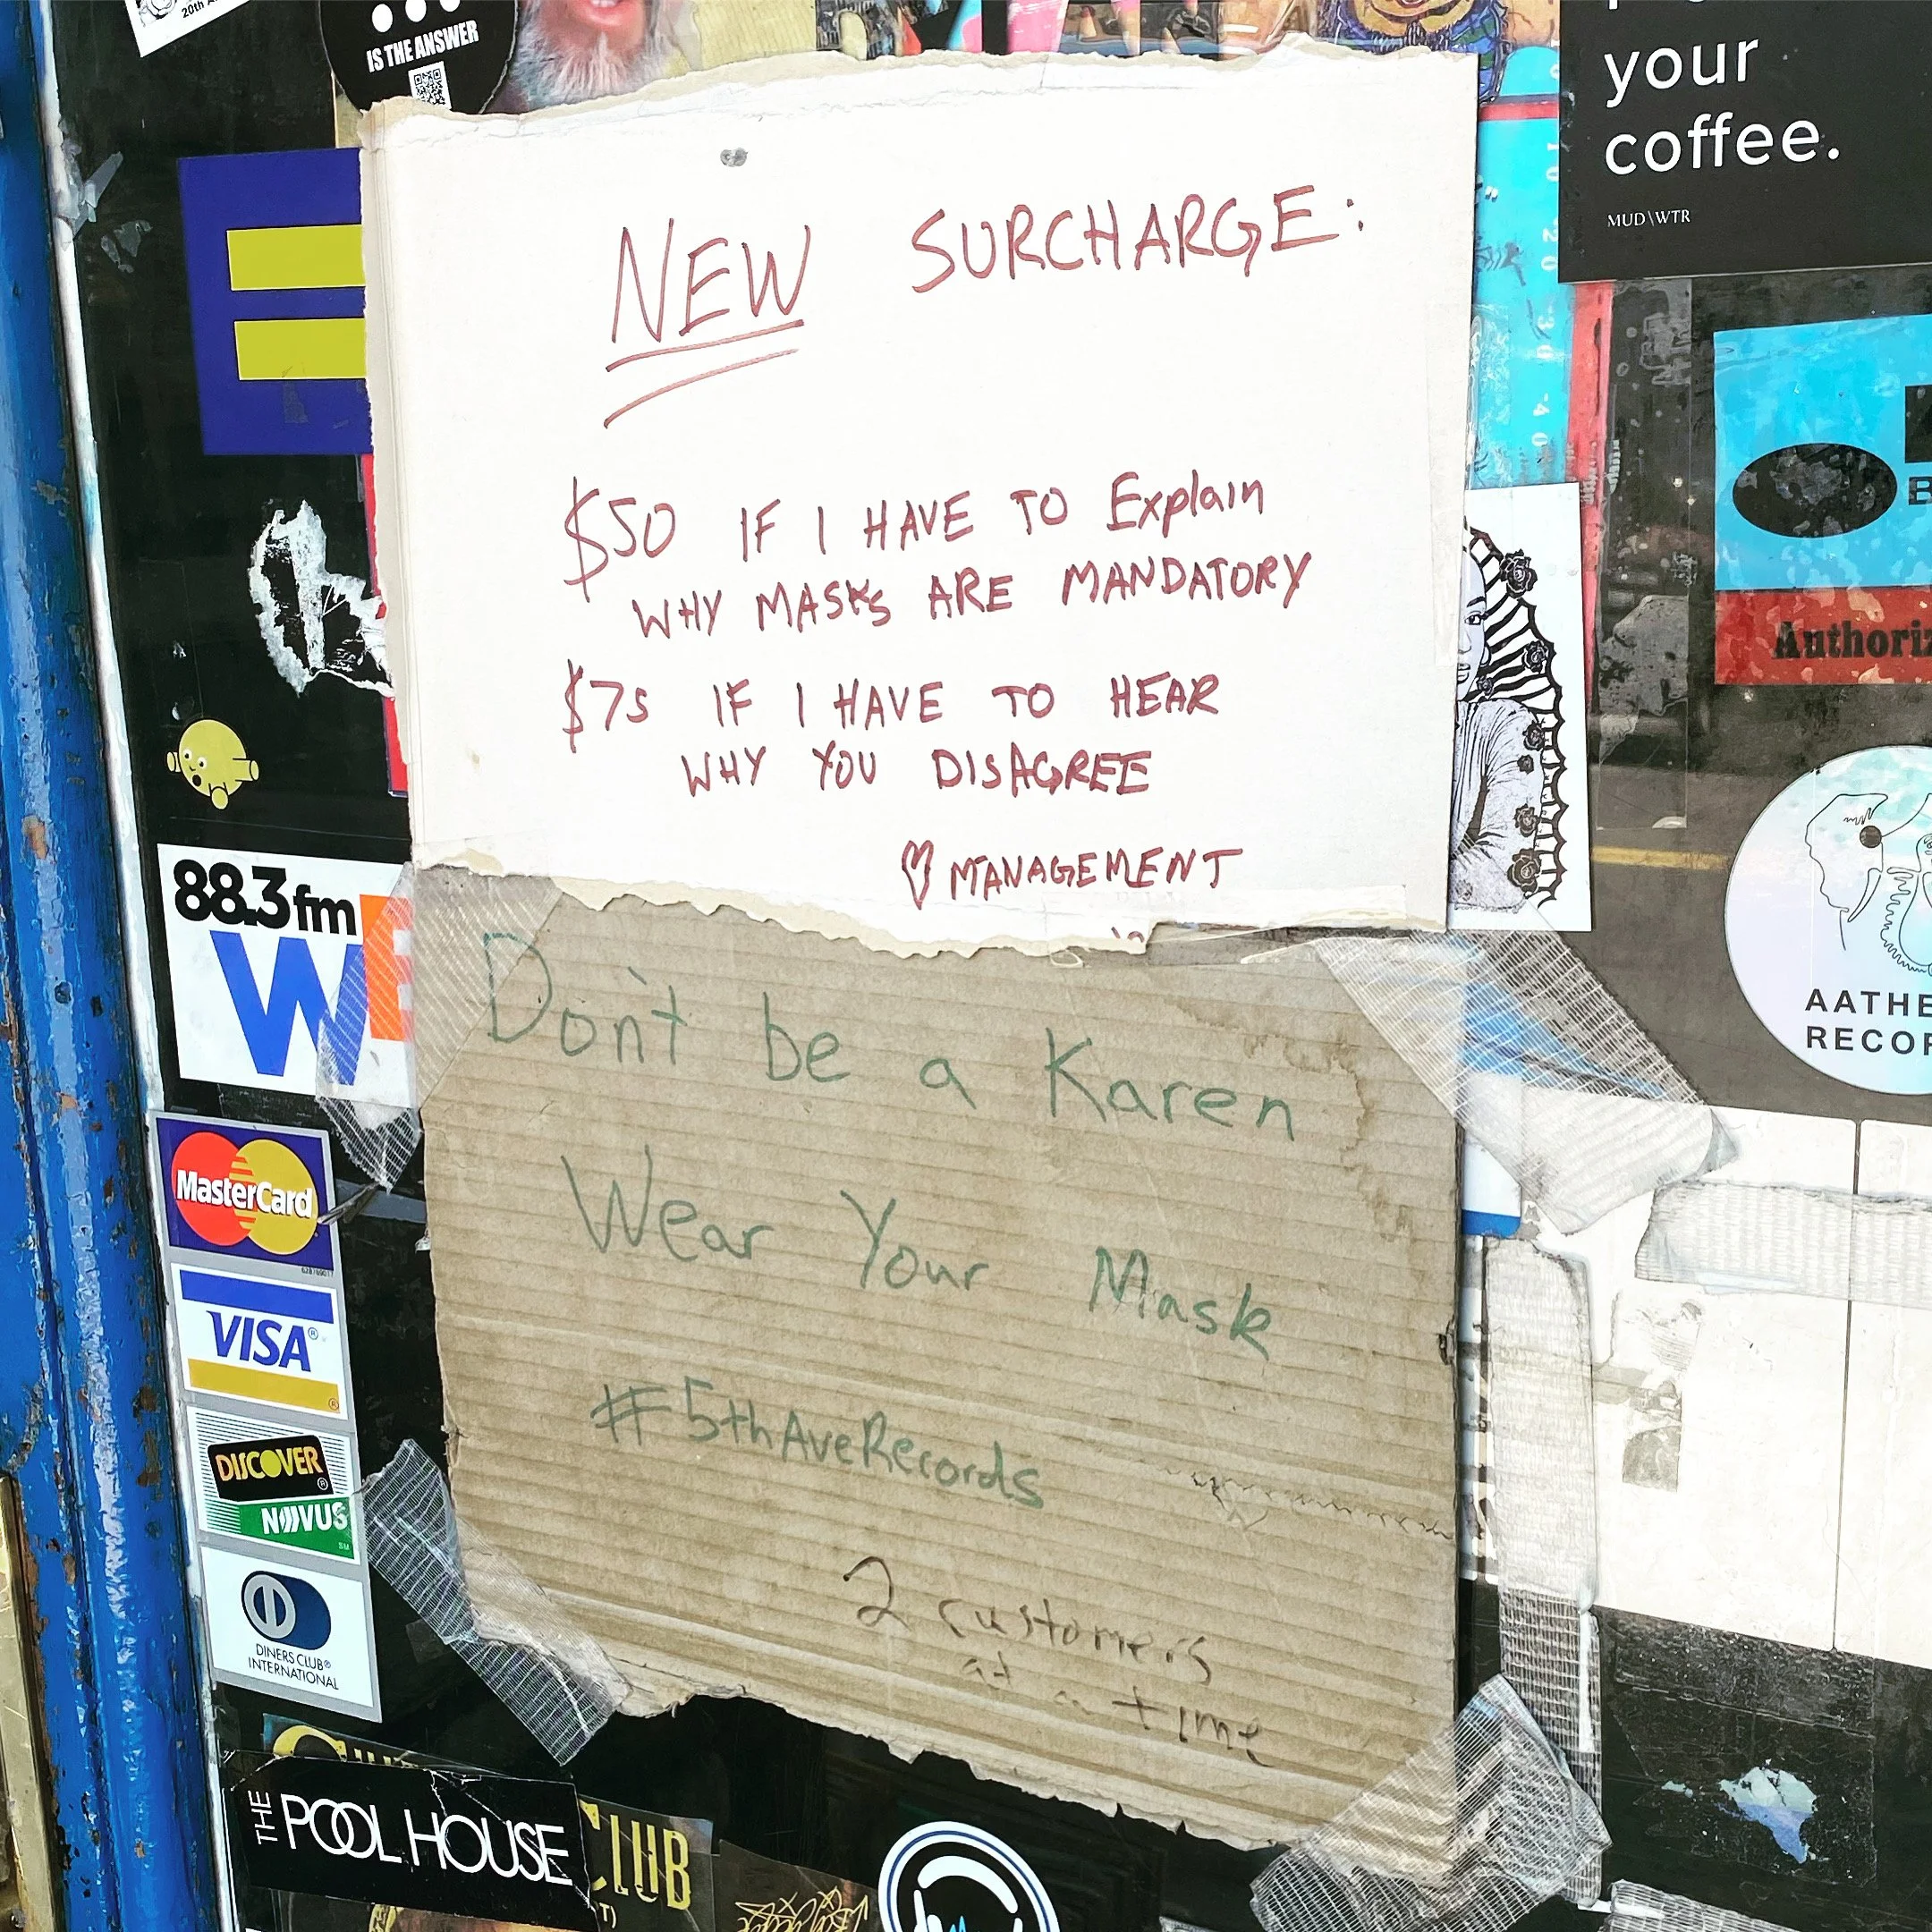 20th A
IS THE ANSWER
your
coffee.
MUD\WTR
NEW SURCHARGE:
$50 IF I HAVE TO Explain
WHY MASKS ARE MANDATORY
$75 IF I HAVE TO HEAR
WHY YOU DISAGREE
♡ MANAGEMENT
Authoriz
88.3 fm
W
AATHE
RECOR
Don't be a Karen
Wear Your Mask
#5thAveRecords
2 customers
at a time
MasterCard
VISA®
DISCOVER®
NOVUS
DINERS CLUB®
INTERNATIONAL
THE POOL HOUSE
CLUB